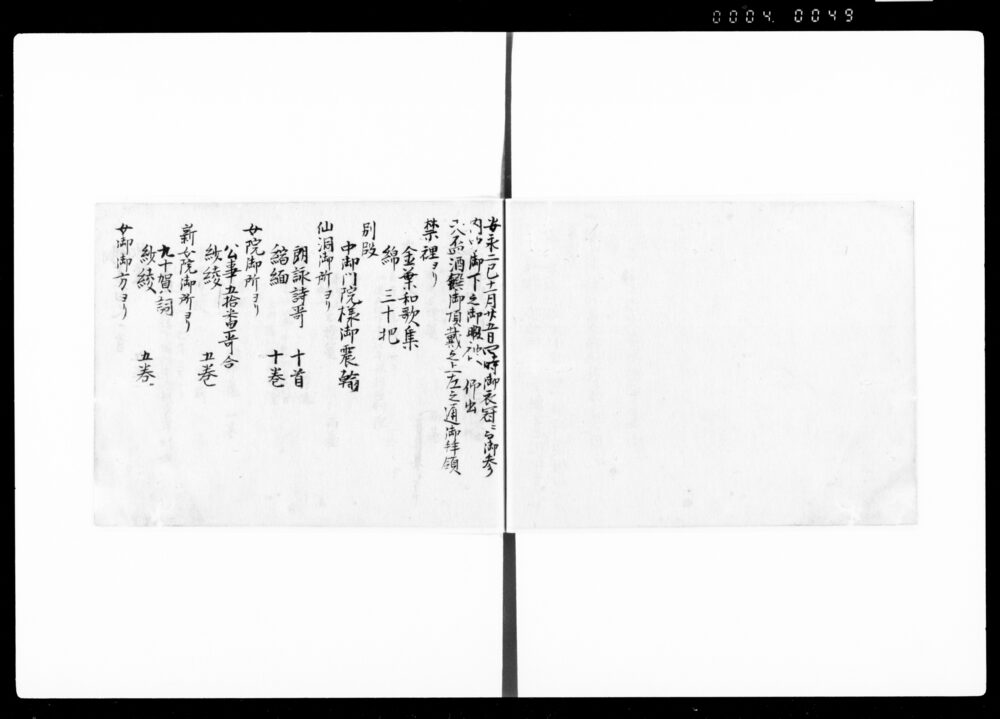 0004. 0049
安永二巳十一月廿五日四時御衣冠ニ而御参
内口御下之御暇被 仰出
天盃酒饌御頂戴之上左之通御拝領
禁裡ヨリ
金葉和歌集
綿 三十把
別段
中御門院様御震翰
仙洞御所ヨリ
朗詠詩哥 十首
縮緬 十巻
女院御所ヨリ
公事五拾番哥合
紋綾 五巻
新女院御所ヨリ
九十賀詞
紋綾 五巻
女御御方ヨリ